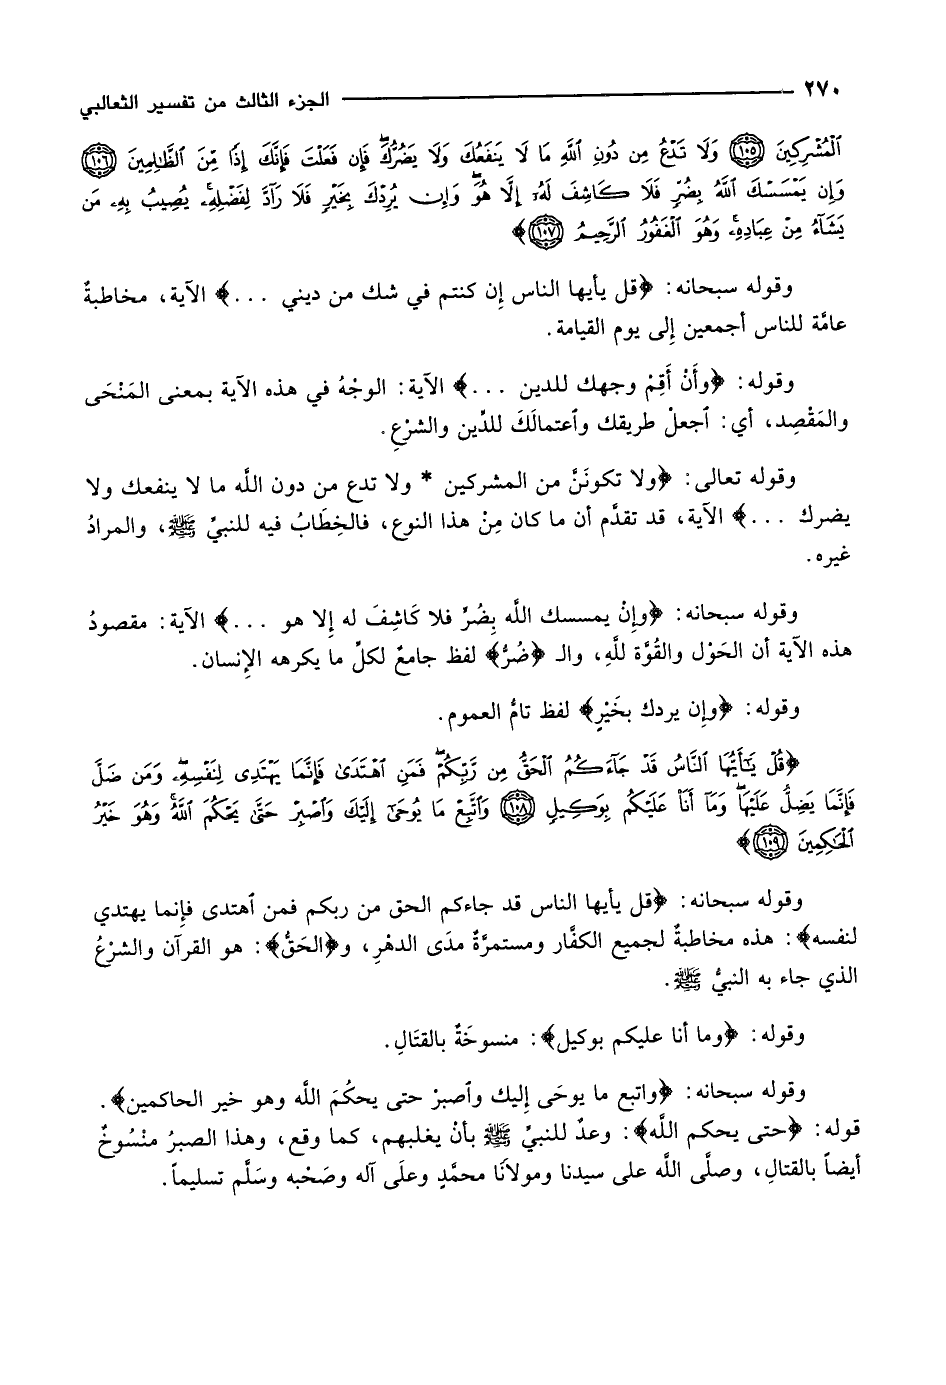 ٢٧٠ الجزء الثالث من تفسير الثعالبي
ٱلْمُشْرِكِينَ (١٠٥) وَلَا تَدْعُ مِن دُونِ ٱللَّهِ مَا لَا يَنفَعُكَ وَلَا يَضُرُّكَۖ فَإِن فَعَلْتَ فَإِنَّكَ إِذًا مِّنَ ٱلظَّٰلِمِينَ (١٠٦)
وَإِن يَمْسَسْكَ ٱللَّهُ بِضُرٍّ فَلَا كَاشِفَ لَهُۥٓ إِلَّا هُوَۖ وَإِن يُرِدْكَ بِخَيْرٍ فَلَا رَآدَّ لِفَضْلِهِۦۚ يُصِيبُ بِهِۦ مَن
يَشَآءُ مِنْ عِبَادِهِۦۚ وَهُوَ ٱلْغَفُورُ ٱلرَّحِيمُ (١٠٧)﴾
وقوله سبحانه: ﴿قل يأيها الناس إِن كنتم في شك من ديني ...﴾ الآية، مخاطبةٌ
عامَّة للناس أجمعين إِلى يوم القيامة.
وقوله: ﴿وأَنْ أَقِمْ وجهك للدين ...﴾ الآية: الوجْهُ في هذه الآية بمعنى المَنْحَى
والمَقْصِد، أي: ٱجعلْ طريقك وٱعتمالَكَ للدِّين والشرْعِ.
وقوله تعالى: ﴿ولا تكونَنَّ من المشركين * ولا تدع من دون اللَّه ما لا ينفعك ولا
يضرك ...﴾ الآية، قد تقدَّم أن ما كان مِنْ هذا النوع، فالخِطَابُ فيه للنبيِّ ﷺ، والمرادُ
غيره.
وقوله سبحانه: ﴿وإِنْ يمسسك اللَّه بِضُرٍّ فلا كَاشِفَ له إِلا هو ...﴾ الآية: مقصودُ
هذه الآية أن الحَوْل والقُوَّة للَّهِ، والـ ﴿ضُرُّ﴾ لفظ جامعٌ لكلِّ ما يكرهه الإِنسان.
وقوله: ﴿وإِن يردك بخَيْرٍ﴾ لفظ تامُّ العموم.
﴿قُلْ يَٰٓأَيُّهَا ٱلنَّاسُ قَدْ جَآءَكُمُ ٱلْحَقُّ مِن رَّبِّكُمْۖ فَمَنِ ٱهْتَدَىٰ فَإِنَّمَا يَهْتَدِى لِنَفْسِهِۦۖ وَمَن ضَلَّ
فَإِنَّمَا يَضِلُّ عَلَيْهَاۖ وَمَآ أَنَا۠ عَلَيْكُم بِوَكِيلٍ (١٠٨) وَٱتَّبِعْ مَا يُوحَىٰٓ إِلَيْكَ وَٱصْبِرْ حَتَّىٰ يَحْكُمَ ٱللَّهُۚ وَهُوَ خَيْرُ
ٱلْحَٰكِمِينَ (١٠٩)﴾
وقوله سبحانه: ﴿قل يأيها الناس قد جاءكم الحق من ربكم فمن ٱهتدى فإِنما يهتدي
لنفسه﴾: هذه مخاطبةٌ لجميع الكفَّار ومستمرَّةٌ مدَى الدهْرِ، و﴿الحَقُّ﴾: هو القرآن والشرْعُ
الذي جاء به النبيُّ ﷺ.
وقوله: ﴿وما أنا عليكم بوكيل﴾: منسوخَةٌ بالقتَالِ.
وقوله سبحانه: ﴿واتبع ما يوحَى إِليك وٱصبرْ حتى يحكُمَ اللَّه وهو خير الحاكمين﴾.
قوله: ﴿حتى يحكم اللَّه﴾: وعدٌ للنبيِّ ﷺ بأنْ يغلبهم، كما وقع، وهذا الصبرُ منْسُوخٌ
أيضاً بالقتالِ، وصلَّى اللَّه على سيدنا ومولاَنَا محمَّدٍ وعلَى آله وصَحْبه وسَلَّم تسليماً.